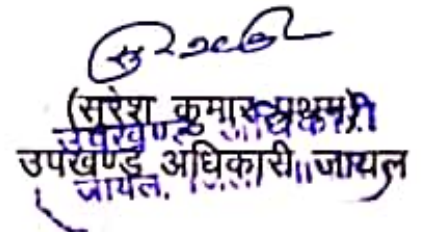 (सुरेश कुमार प्रथम)
उपखण्ड अधिकारी
उपखण्ड अधिकारी जायल
जायल